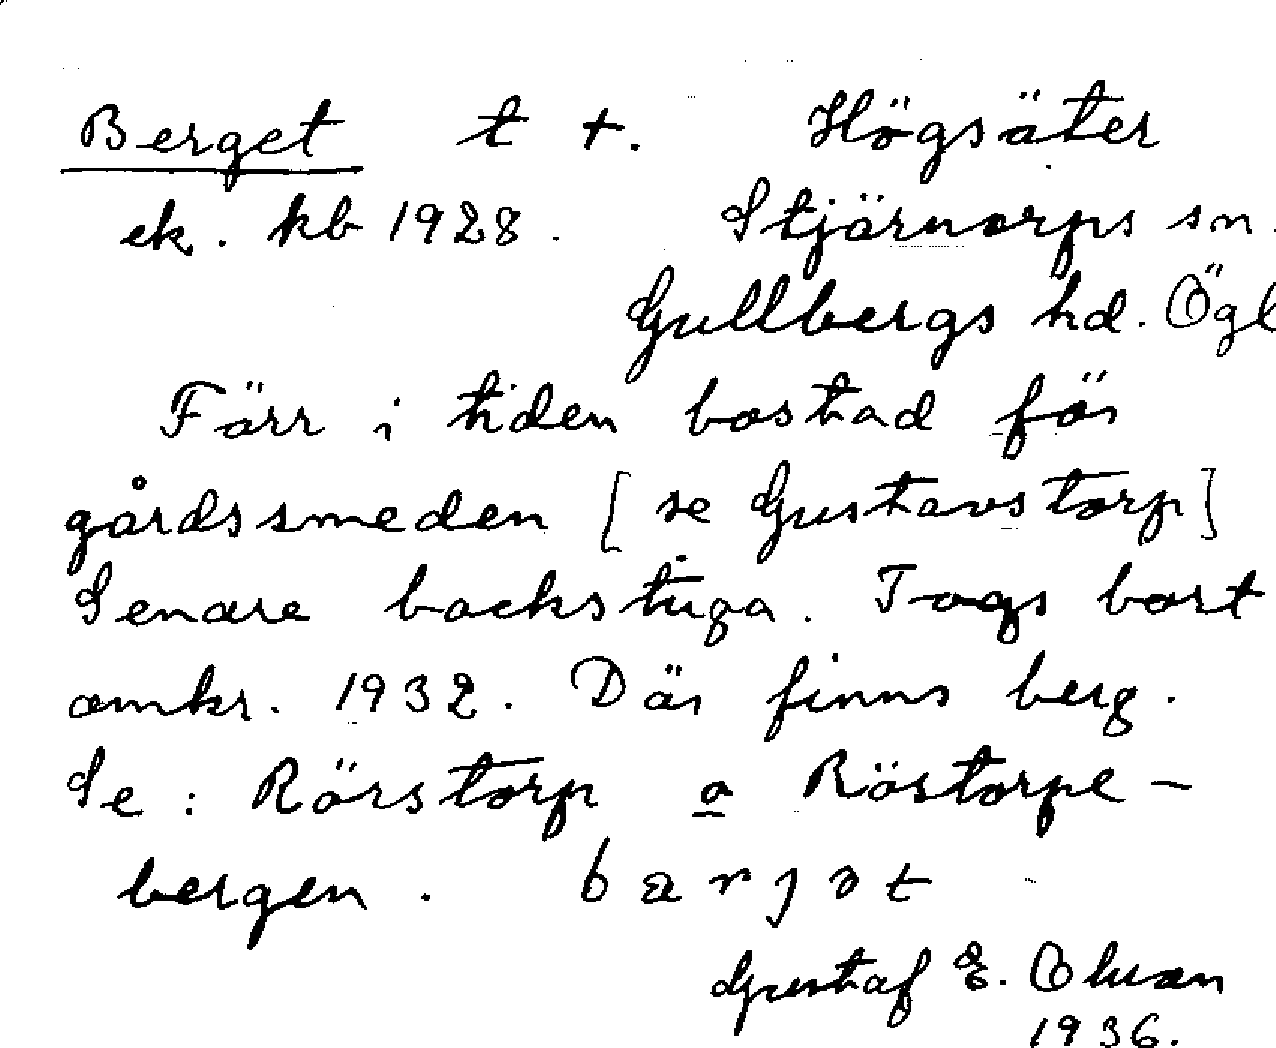 Berget t +. Högsäter
ek. kb 1928. Stjärnorps sn.
Gullbergs hd. Ögl
Förr i tiden bostad för
gårdssmeden [se Gustavstorp]
Senare backstuga. Togs bort
omkr. 1932. Där finns berg.
Se: Rörstorp o Röstorpe-
bergen. barjət
Gustaf E. Olsson
1936.